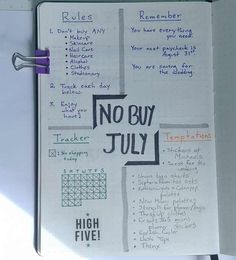 Rules
1. Don't buy ANY
• Makeup
• Skincare
• Nail Care
• Haircare
• Alcohol
• Clothes
• Stationary
2. Track each day
below.
3. Enjoy
what you
have!
Remember
You have everything
you need.
Your next paycheck is
August 31st
You are saving for
the wedding
NO BUY
JULY
Tracker
No shopping
today
S M T W T F S
HIGH
FIVE!
Temptations
• Stickers at
Michaels
• for the
wedding
shirts
palettes
• New
• Stencils for
• Thredup clothes
• Thinx